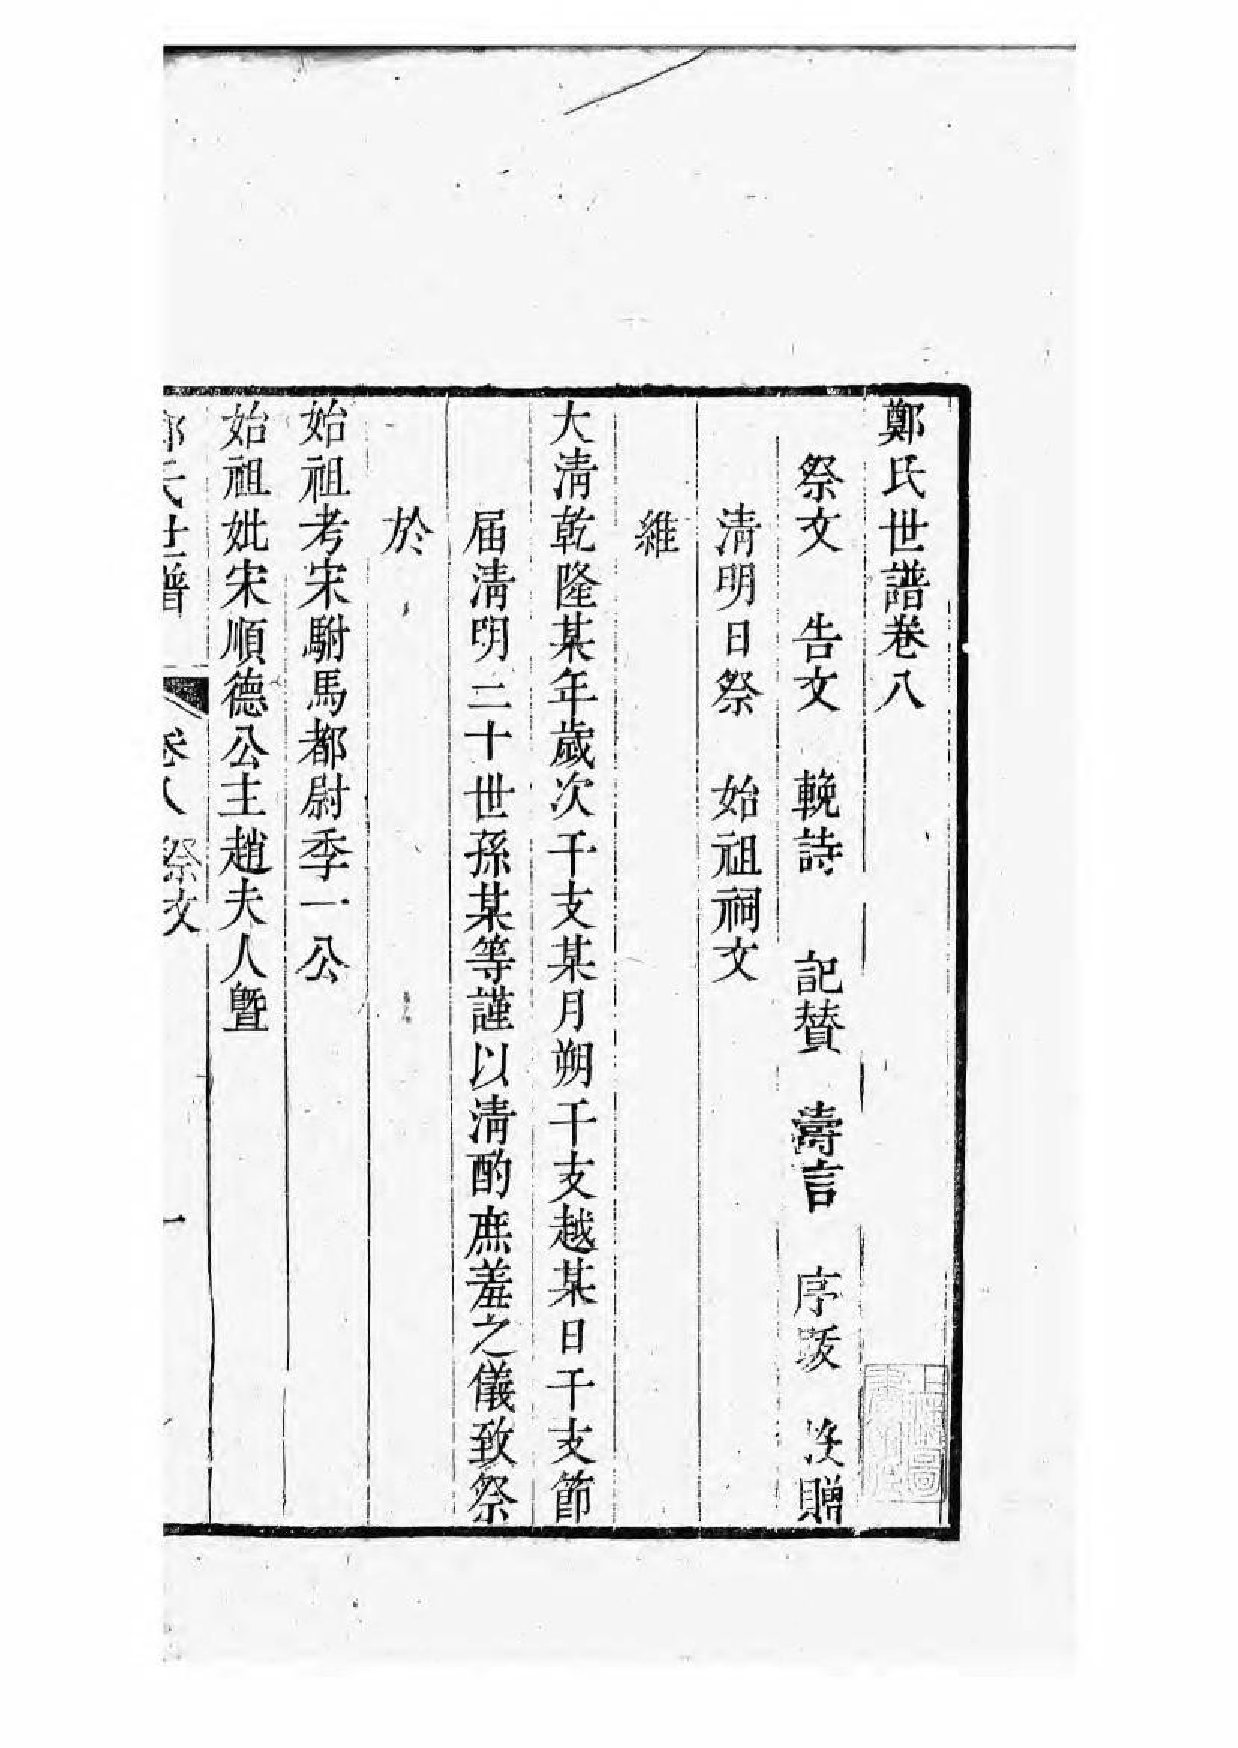 鄭氏世譜卷八
祭文 告文 輓詩 記贊 壽言 序跋 投贈
清明日祭 始祖祠文
維
大清乾隆某年歲次干支某月朔干支越某日干支節
届清明二十世孫某等謹以清酌庶羞之儀致祭
於
始祖考宋駙馬都尉季一公
始祖妣宋順德公主趙夫人暨
鄭氏世譜 卷八 祭文 一